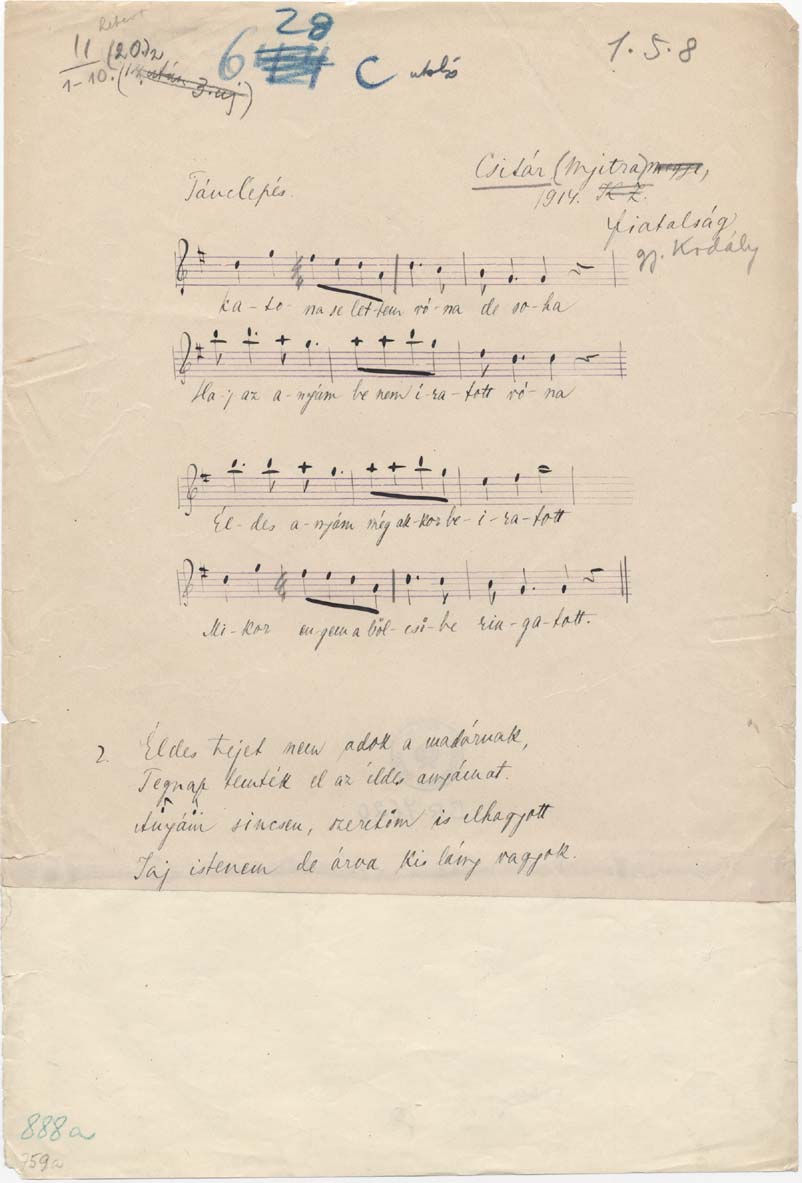 28
II (20.)2
6
C
utolsó
1. 5. 8
1-10.
Csitár (Nyitra) megye,
Tánclépés.
1914. K Z.
fiatalság
gy. Kodály
ka-to-na se let-tem vó-na de so-ha
Ha-j az a-nyám be nem i-ra-tott vó-na
Él-des a-nyám még ak-kor be-i-ra-tott
Mi-kor en-gem a böl-cső-be rin-ga-tott.
2. Éldes tejet nem adok a madárnak,
Tegnap temték el az éldes anyámat.
Anyám sincsen, szeretőm is elhagyott
Jaj istenem de árva kis lány vagyok.
888a
759a